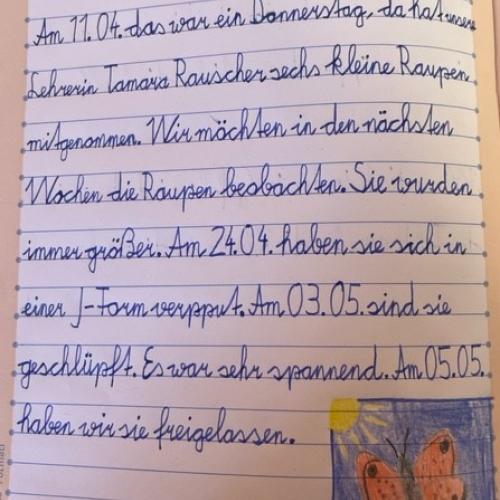 Am 11.04. das war ein Donnerstag, da hat unsere
Lehrerin Tamara Rauscher sechs kleine Raupen
mitgenommen. Wir möchten in den nächsten
Wochen die Raupen beobachten. Sie wurden
immer größer. Am 24.04. haben sie sich in
einer J-Form verpput. Am 03.05. sind sie
geschlüpft. Es war sehr spannend. Am 05.05.
haben wir sie freigelassen.